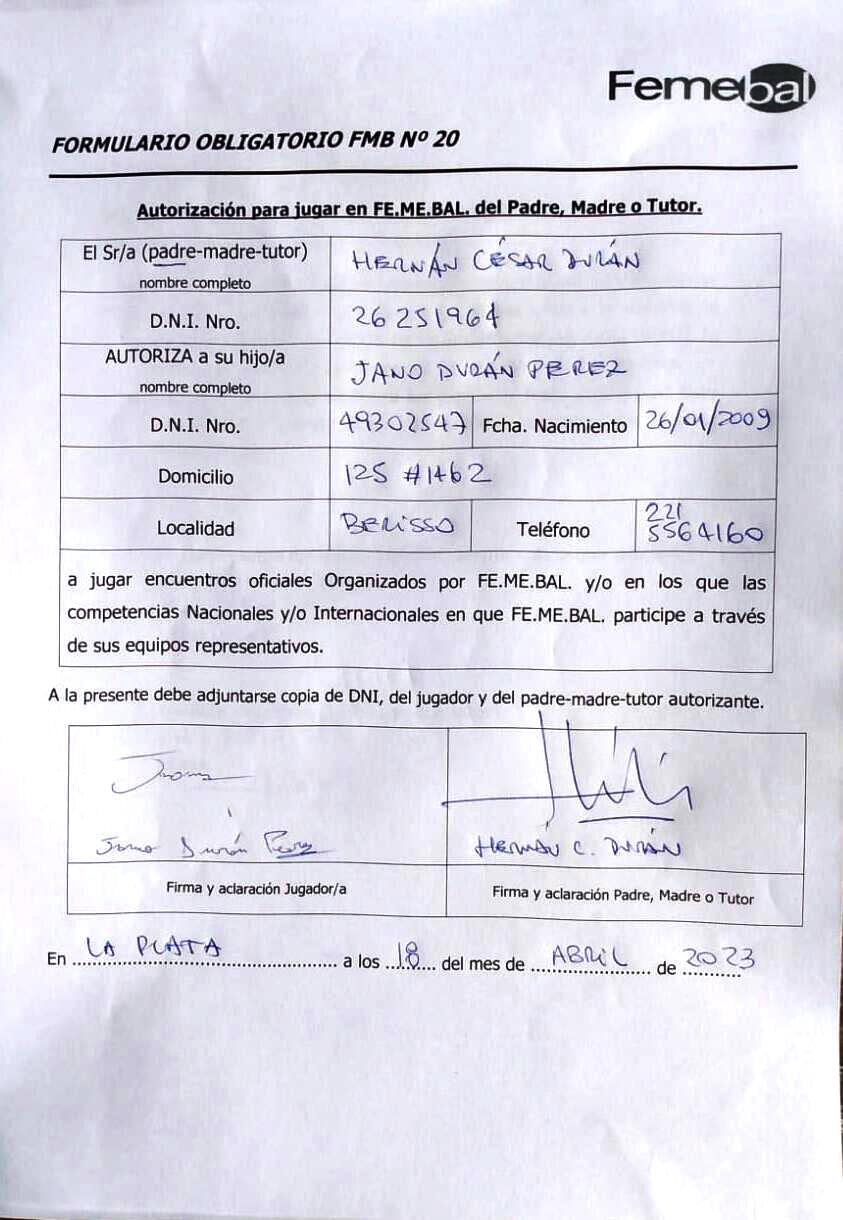 Femebal
FORMULARIO OBLIGATORIO FMB Nº 20
Autorización para jugar en FE.ME.BAL. del Padre, Madre o Tutor.
El Sr/a (padre-madre-tutor) HERNÁN CÉSAR DURÁN
nombre completo
D.N.I. Nro. 26 251964
AUTORIZA a su hijo/a JANO DURÁN PEREZ
nombre completo
D.N.I. Nro. 49302547 Fcha. Nacimiento 26/01/2009
Domicilio 125 #1462
Localidad BERISSO Teléfono 221 5564160
a jugar encuentros oficiales Organizados por FE.ME.BAL. y/o en los que las
competencias Nacionales y/o Internacionales en que FE.ME.BAL. participe a través
de sus equipos representativos.
A la presente debe adjuntarse copia de DNI, del jugador y del padre-madre-tutor autorizante.
Jano Durán Perez HERNÁN C. DURÁN
Firma y aclaración Jugador/a Firma y aclaración Padre, Madre o Tutor
En LA PLATA a los 18 del mes de ABRIL de 2023